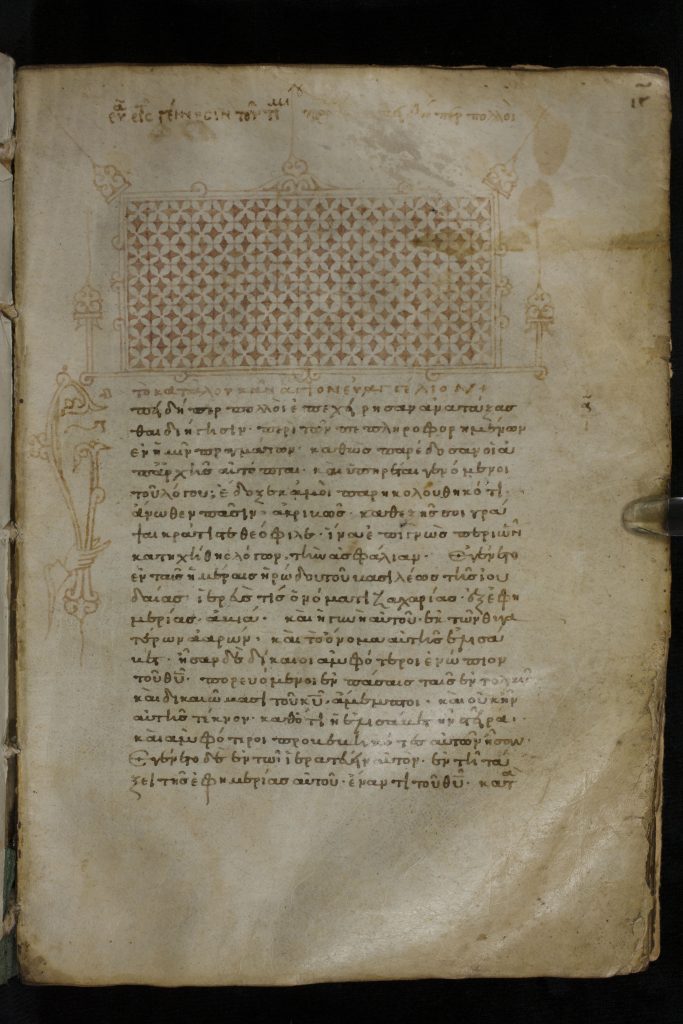 εὐα εἰς γέννησιν τοῦ τιμι προ πολλοὶ
τὸ κατὰ λουκᾶν ἅγιον εὐαγγέλιον
πειδήπερ πολλοὶ ἐπεχείρησαν ἀνατάξασ
θαι διήγησιν· περὶ τῶν πεπληροφορημένων
ἐν ἡμῖν πραγμάτων· καθὼς παρέδοσαν οἱ ἀ
π' ἀρχῆς αὐτόπται· καὶ ὑπηρέται γενόμενοι
τοῦ λόγου· ἔδοξε κἀμοὶ παρηκολουθηκότι·
ἄνωθεν πᾶσιν ἀκριβῶς· καθεξῆς σοι γρά
ψαι κράτιστε θεόφιλε· ἵνα ἐπιγνῷς περὶ ὧν
κατηχήθης λόγων, τὴν ἀσφάλειαν· Ἐγένετο
ἐν ταῖς ἡμέραις ἡρώδου τοῦ βασιλέως τῆς ἰου
δαίας· ἱερεύς τις ὀνόματι ζαχαρίας· ἐξ ἐφη
μερίας ἀβιά· καὶ ἡ γυνὴ αὐτοῦ· ἐκ τῶν θυγα
τέρων ἀαρών· καὶ τὸ ὄνομα αὐτῆς ἐλισα
βετ· ἦσαν δὲ δίκαιοι ἀμφότεροι ἐνώπιον
τοῦ θυ· πορευόμενοι ἐν πάσαις ταῖς ἐντολαῖς
καὶ δικαιώμασι τοῦ κυ ἄμεμπτοι· καὶ οὐκ ἦν
αὐτοῖς τέκνον· καθότι ἡ ἐλισαβετ ἦν στεῖρα·
καὶ ἀμφότεροι προβεβηκότες αὐτῶν ἦσαν·
Ἐγένετο δὲ ἐν τῷ ἱερατεύειν αὐτὸν· ἐν τῇ τά
ξει τῆς ἐφημερίας αὐτοῦ· ἔναντι τοῦ θυ· κατα